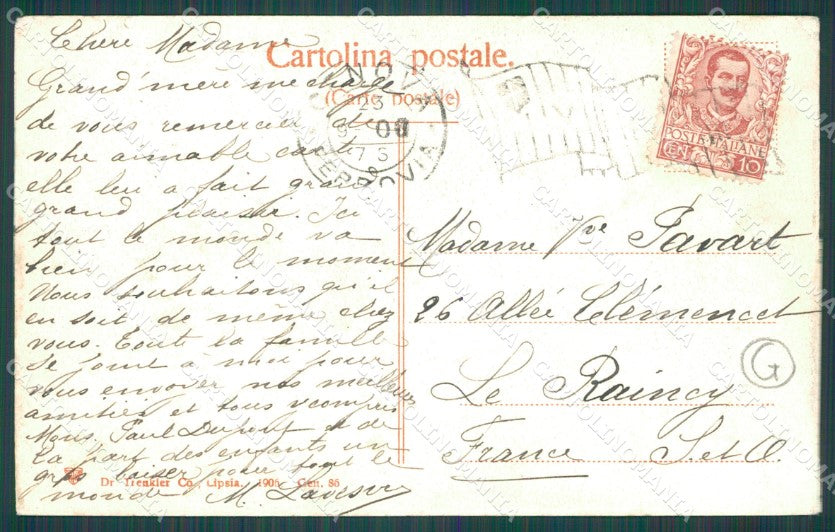 Chère Madame
Grand'mère me charge
de vous remercier de
votre aimable carte
elle leu a fait grand
grand plaisir. Ici
tout le monde va
bien pour le moment
Nous souhaitons qu'il
en soit de même chez
vous. Toute la famille
se joint à moi pour
vous envoyer nos meilleures
amitiés et tous y compris
Mons. Paul Dupont et de
la part des enfants un
gros baiser pour tout le
monde M.
Cartolina postale.
(Carte postale)
FERROVIA
POSTE ITALIANE
CEN 10
Madame Vve Favart
26 Allée Clémencet
Le Raincy
France S. et O.
G
Dr Trenkler Co., Lipsia. 1906 Gen. 86
CARTOLINOMANIA